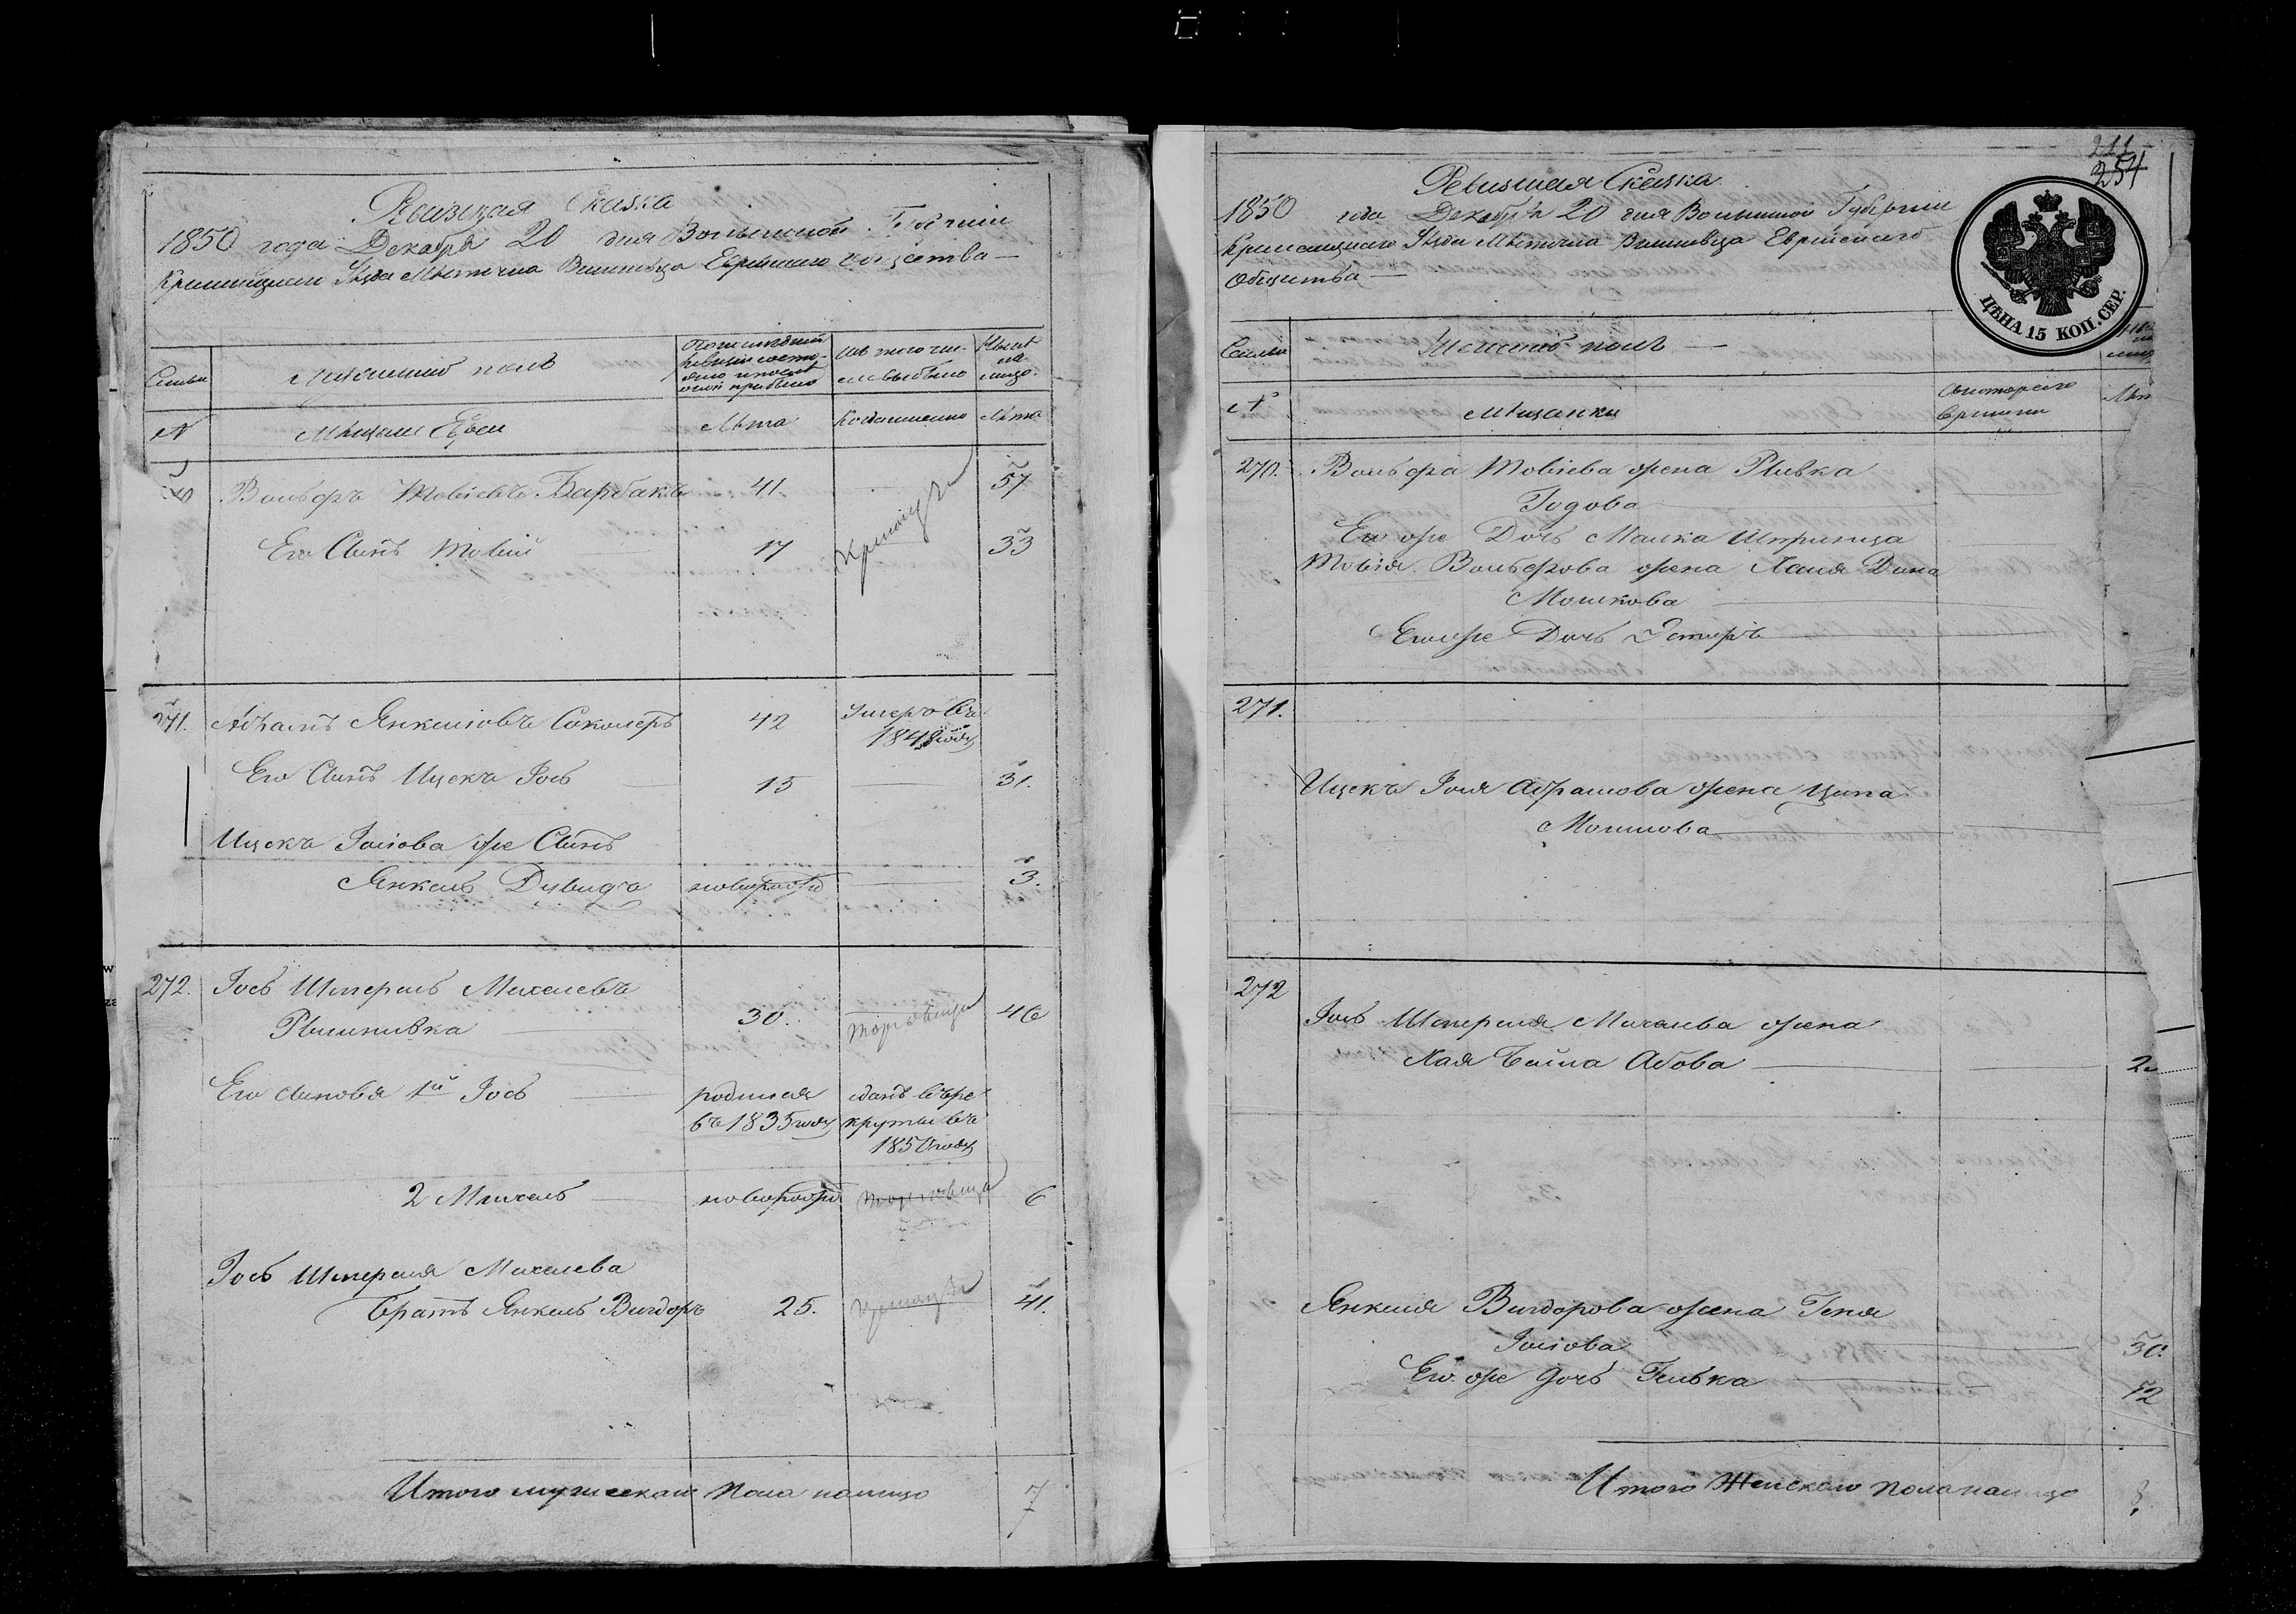 Ревизская Сказка
1850 года Декабря 20 дня Волынской Губернии
Кременецкаго Уезда Местечка Вишневца Еврейскаго общества —
Семьи
Мужеский полъ
По последней ревизии состояло и после оной прибыло
Изъ того числа выбыло
Ныне на лицо
№
Мещане Евреи
Лета
Когда именно
Лета
Вольфъ Мовшевъ Барбакъ 41. 57
Его Сынъ Мовшй 17 33
Кременецъ
271. Абрамъ Янкелiовъ Соколеръ 42 Умеръ въ
1848 году
Его Сынъ Ицекъ Iось 15 31.
Ицекъ Iосiова же Сынъ
Янкель Дувидъ новорожд 3.
272. Iось Шмерель Михелевъ
30. 46
Его сыновья 1й Iось родился сданъ въ ре
въ 1835 году круты въ
1850 году
2 Михель новорожд 6
Iось Шмереля Михелева
братъ Янкель Вигдоръ 25. 41.
Итого мужескаго пола налицо 7
211
254
Ревизская Сказка
1850 года Декабря 20 дня Волынской Губернии
Кременецкаго Уезда Местечка Вишневца Еврейскаго
Общества —
ЦѢНА 15 КОП. СЕР.
Семьи
Женский полъ
№
Мещанки
270. Вольфа Мовшева жена Ривка
Годова
Его же Дочь Малка Шпринца
Мовшя Вольфова жена Хана Дина
Мошкова
Его же Дочь Эстеръ
271.
Ицекъ Iося Абрамова жена Ципа
Мошкова
272
Iось Шмереля Михелева жена
Хая Бейла Абова
Янкеля Вигдорова жена Геня
Iосiова 30.
Его же дочь 12
Итого Женскаго пола налицо 8.